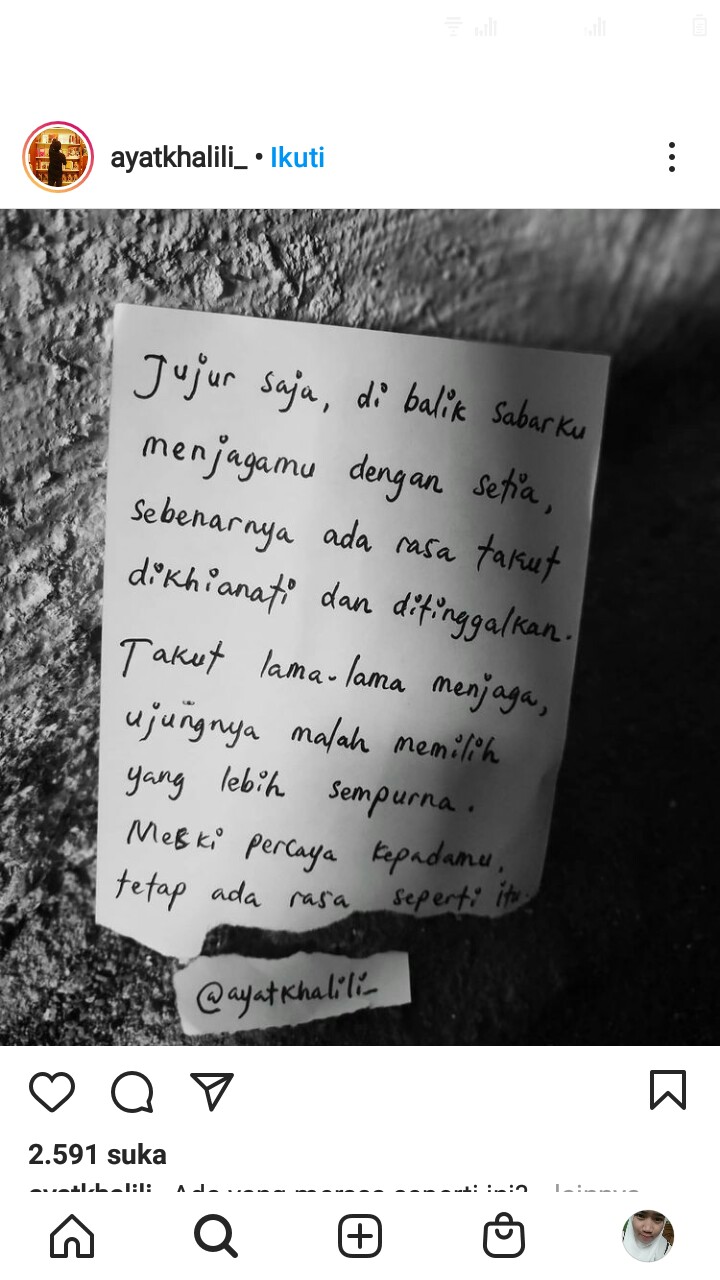 ayatkhalili_ • Ikuti
Jujur saja, di balik sabarku
menjagamu dengan setia,
sebenarnya ada rasa takut
dikhianati dan ditinggalkan.
Takut lama-lama menjaga,
ujungnya malah memilih
yang lebih sempurna.
Meski percaya kepadamu,
tetap ada rasa seperti itu.
@ayatkhalili_
2.591 suka
ayatkhalili_ Ada yang merasa seperti ini? .. lainnya